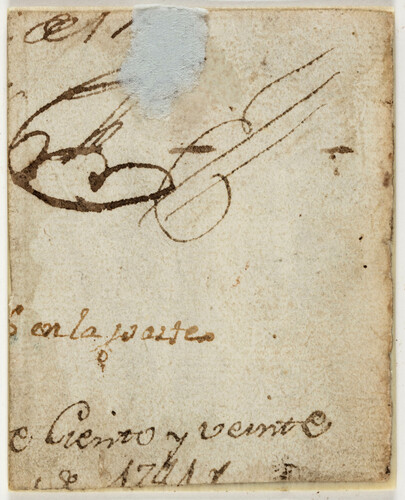 en la parte
e Ciento y veinte
de 1741